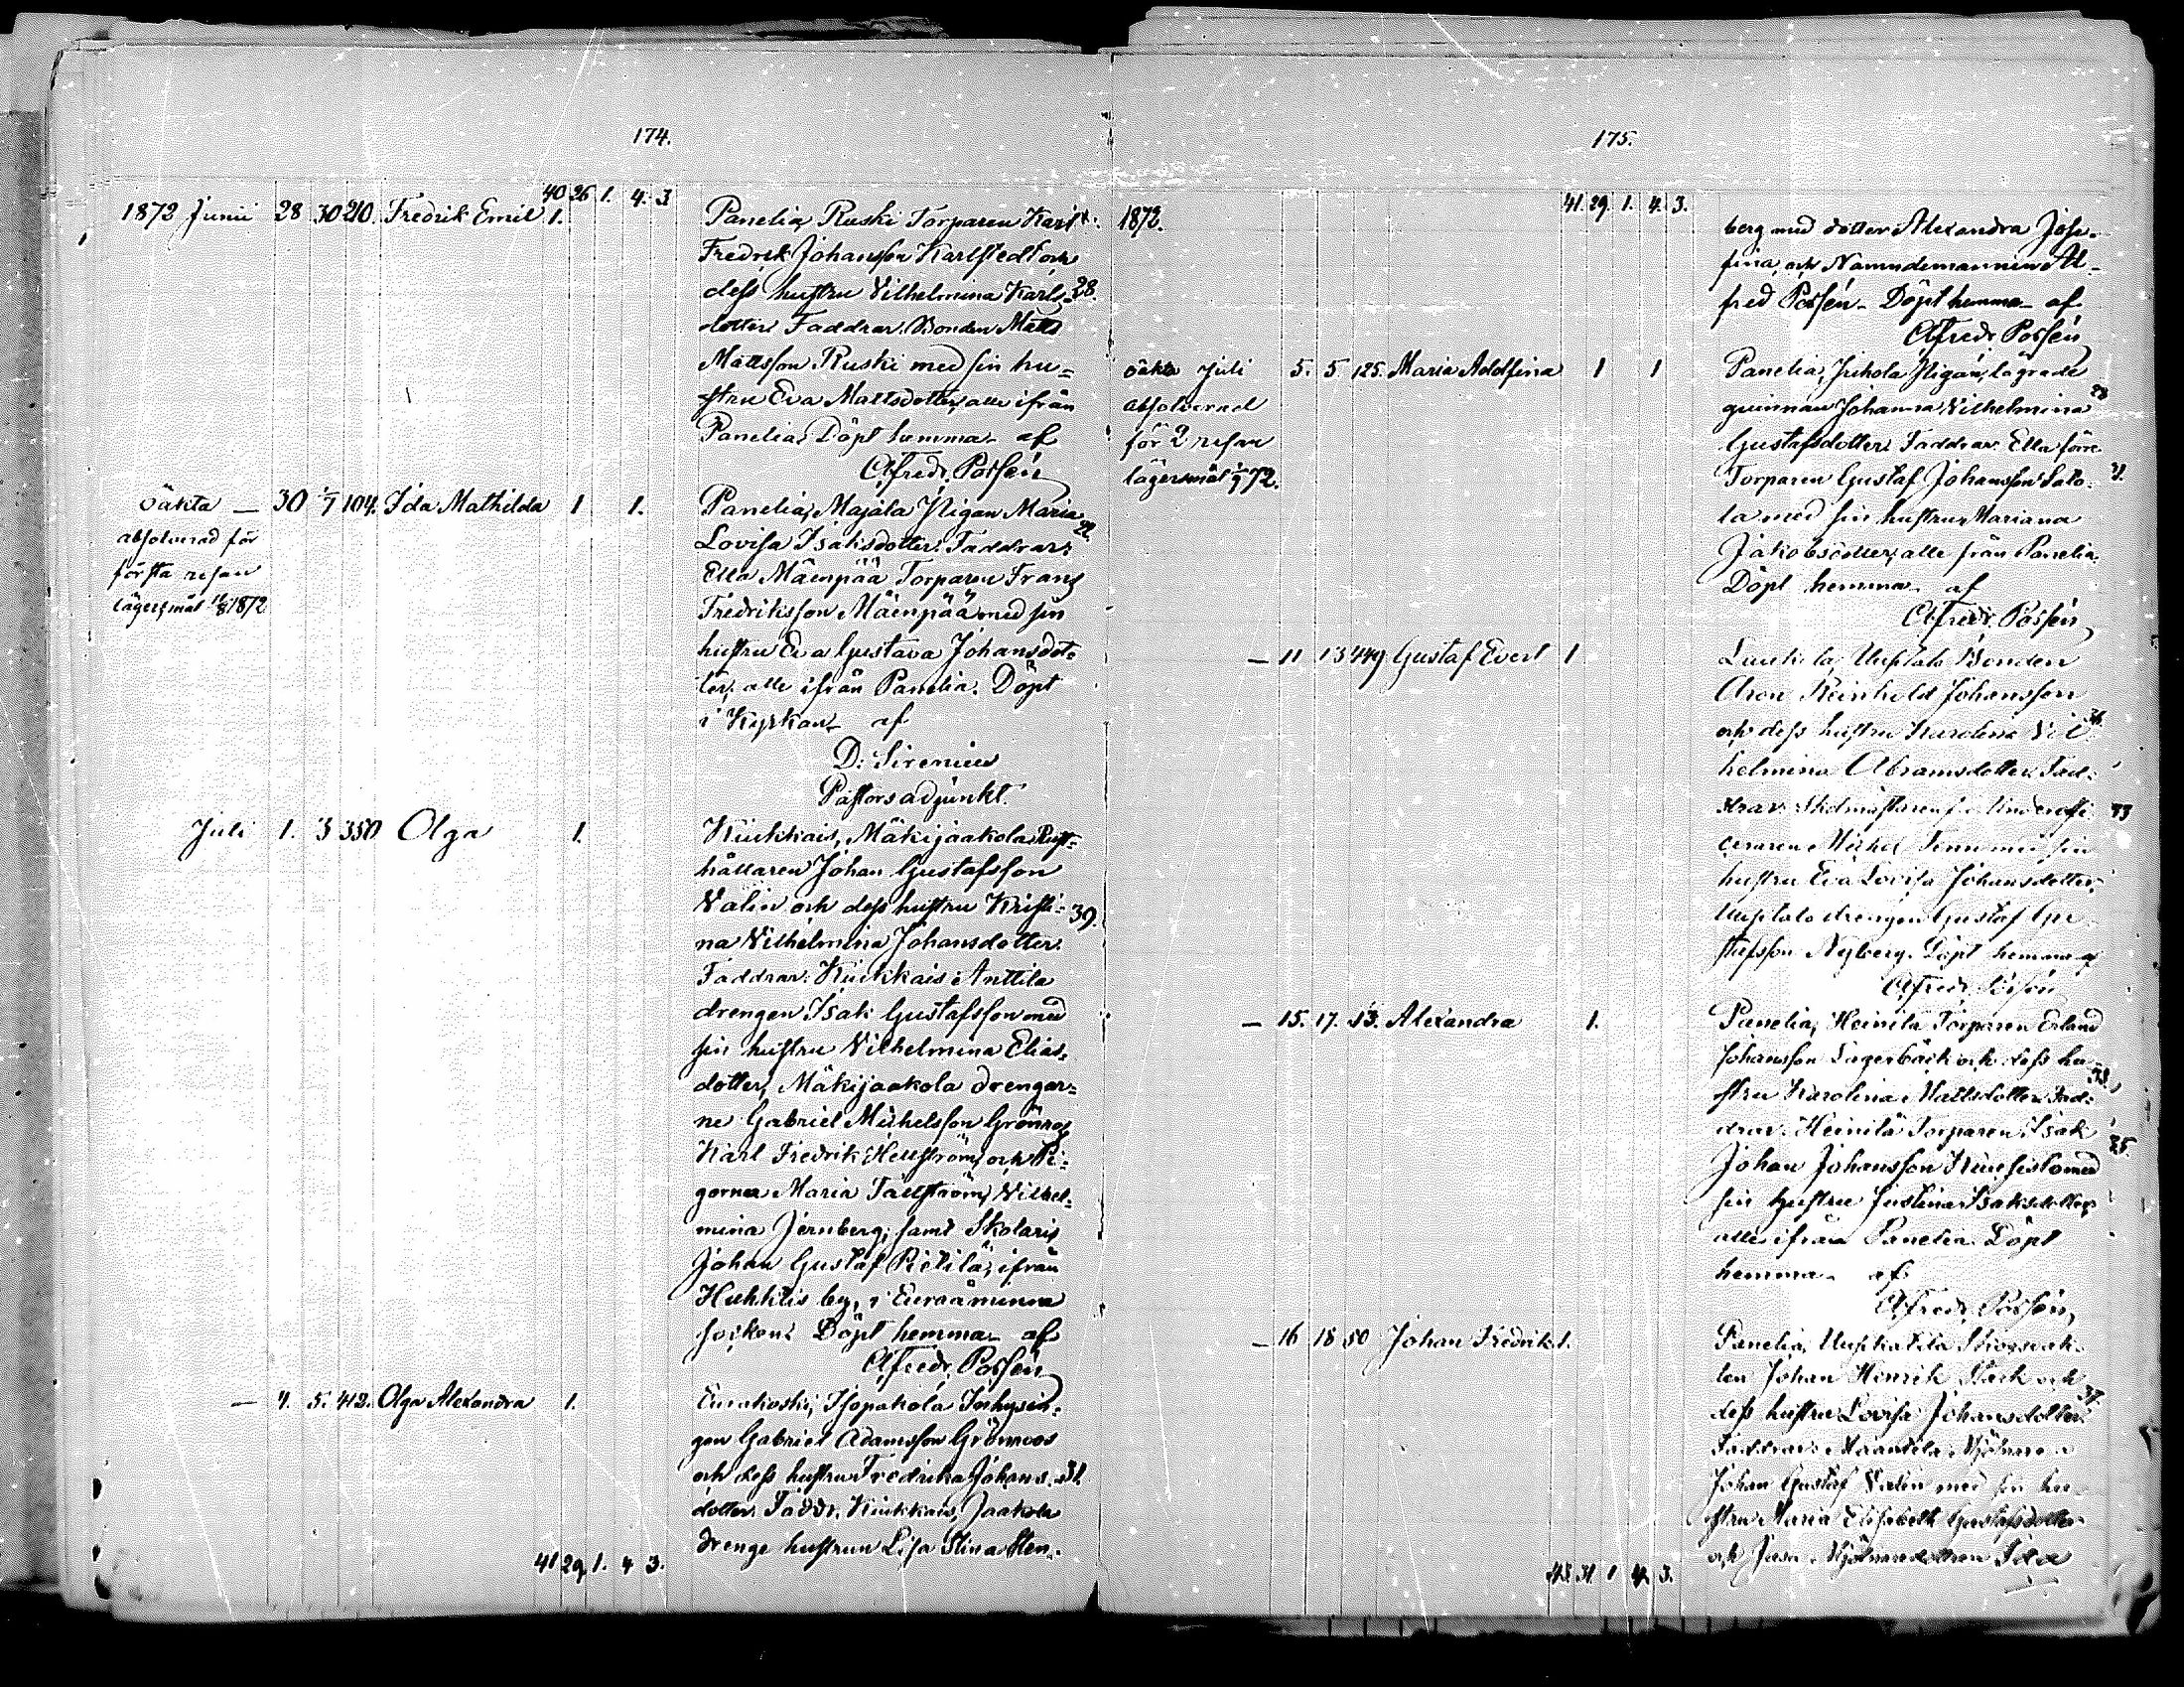 174.
40 26 1. 4. 3
1872 Junii 28 30 210. Fredrik Emil 1. Panelia, Ruski Torparen Karl
Fredrik Johansson Karlstedt och
dess hustru Vilhelmina Karls- 28.
dotter. Faddrar: Bonden Matts
Mattsson Ruski med sin hu=
stru Eva Mattsdotter, alle ifrån
Panelia. Döpt hemma af
Alfred Possén
oäkta — 30 1/7 104. Ida Mathilda 1 1. Panelia, Majala Pigan Maria
absolverad för Lovisa Isaksdotter. Faddrar: 22.
första resan Ella Mäenpää Torparen Frans
lägersmål 1872 Fredriksson Mäenpää med sin
hustru Eva Gustava Johansdot=
ter, alle ifrån Panelia. Döpt
i Kyrkan af
D. Sirenius
Pastorsadjunkt.
Juli 1. 3 350 Olga 1. Kiukkais, Mäkijaakola Rust=
hållaren Johan Gustafsson
Valin och dess hustru Kristi= 39.
na Vilhelmina Johansdotter.
Faddrar: Kiukkais Anttila
drengen Isak Gustafsson med
sin hustru Vilhelmina Elias=
dotter, Mäkijaakola drengar=
ne Gabriel Michelsson Grönroos
Karl Fredrik Hellström, och Pi=
gorna Maria Tallström, Vilhel=
mina Jernberg, samt Skolaris
Johan Gustaf Pietilä, ifrån
Huhktis by, i Euraåminne
socken. Döpt hemma af
Alfred Possén
— 4. 5. 412. Olga Alexandra 1. Eurakoski, Isopakola Inhysin=
gen Gabriel Adamsson Grönroos
och dess hustru Fredrika Johans= 31.
dotter. Faddr. Kiukkais, Jaakola
drenge hustrun Lisa Stina Sten=
41 29. 1. 4 3.
175.
41. 29. 1. 4. 3.
1872. berg med dotter Alexandra Jose=
fina, och Nämndemannen Al=
fred Possén. Döpt hemma af
Alfred Possén
oäkta Juli 5. 5. 125. Maria Adolfina 1 1 Panelia, Juhola Pigan, lägrade
absolverad quinnan Johanna Vilhelmina 28
för 2 resan Gustafsdotter. Faddrar: Ella förre
lägersmål 72. Torparen Gustaf Johansson Salo=
la med sin hustru Mariana
Jakobsdotter, alle från Panelia.
Döpt hemma af
Alfred Possén
— 11 13 449 Gustaf Evert 1 Luukila, Uusitalo Bonden
Aron Reinhold Johansson
och dess hustru Karolina Vil= 36.
helmina Abramsdotter. Fad=
drar: Skolmästaren f. Underoffi= 33
ceraren Michel Tenn med sin
hustru Eva Lovisa Johansdotter,
Uusitalo drengen Gustaf Gu=
stafsson Nyberg. Döpt hemma af
Alfred Possén
— 15. 17. 13. Alexandra 1. Panelia, Heinilä Torparen Erland
Johansson Lagerbäck och dess hu=
stru Karolina Mattsdotter. Fad= 38.
drar: Heinilä Torparen Isak
Johan Johansson Kuusisto med 25.
sin hustru Justina Isaksdotter,
alle ifrån Panelia. Döpt
hemma af
Alfred Possén
— 16 18 50 Johan Fredrik 1. Panelia, Uusikatila Skogsvak=
ten Johan Henrik Stark och
dess hustru Lovisa Johansdotter. 37.
Faddrar: Maantila Mjölnaren
Johan Gustaf Valin med sin hu=
stru Maria Elisabeth Gustafsdotter
och Mjölnaredottren Ida
43. 31. 1 4. 3.